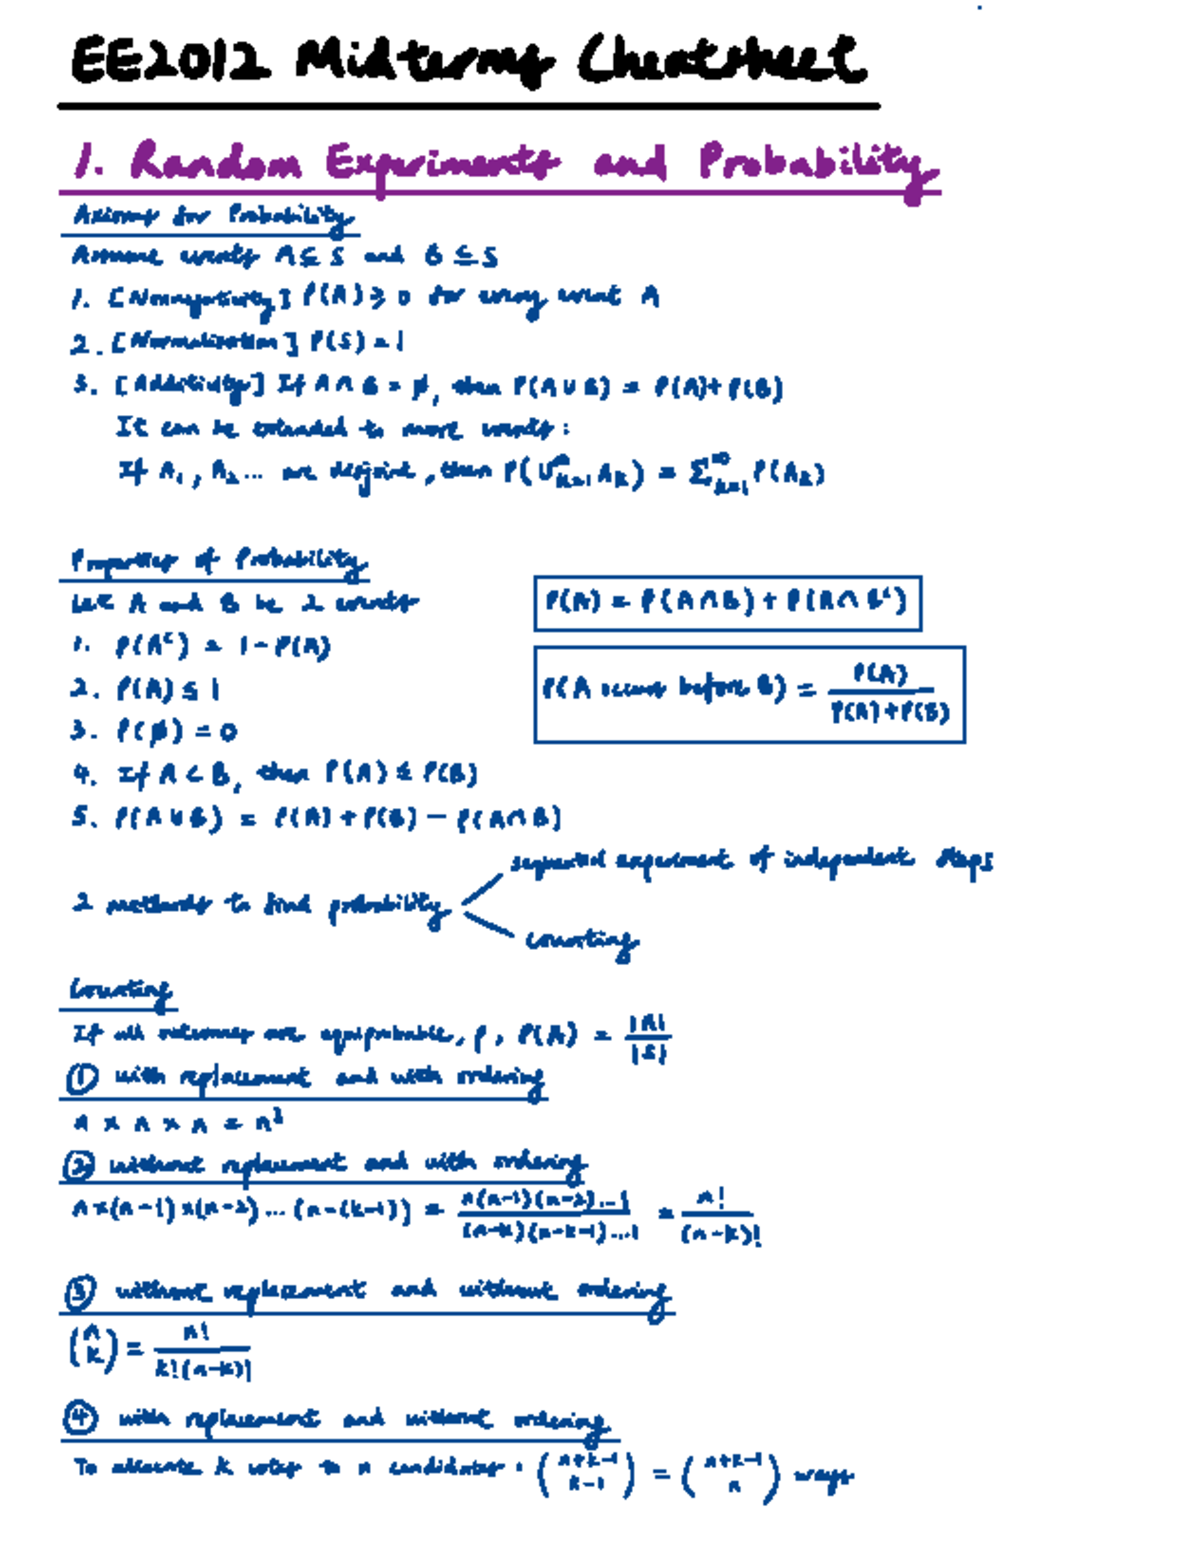 EE2012 Midterms Cheatsheet
1. Random Experiments and Probability
Axioms for Probability
Assume events A ⊆ S and B ⊆ S
1. [Nonnegativity] P(A) ≥ 0 for every event A
2. [Normalisation] P(S) = 1
3. [Additivity] If A ∩ B = ∅, then P(A ∪ B) = P(A) + P(B)
It can be extended to more events:
If A₁, A₂... are disjoint, then P(∪ₖ₌₁^∞ Aₖ) = Σₖ₌₁^∞ P(Aₖ)
Properties of Probability
Let A and B be 2 events
P(A) = P(A ∩ B) + P(A ∩ Bᶜ)
1. P(Aᶜ) = 1 - P(A)
2. P(A) ≤ 1
P(A occurs before B) = P(A) / (P(A) + P(B))
3. P(∅) = 0
4. If A ⊂ B, then P(A) ≤ P(B)
5. P(A ∪ B) = P(A) + P(B) - P(A ∩ B)
sequential experiment of independent steps
2 methods to find probability
counting
Counting
If all outcomes are equiprobable, p, P(A) = |A| / |S|
① with replacement and with ordering
n × n × n = n³
② without replacement and with ordering
n × (n-1) × (n-2) ... (n-(k-1)) = n(n-1)(n-2)...1 / (n-k)(n-k-1)...1 = n! / (n-k)!
③ without replacement and without ordering
(n k) = n! / k!(n-k)!
④ with replacement and without ordering
To allocate k votes to n candidates: (n+k-1 k-1) = (n+k-1 n) ways